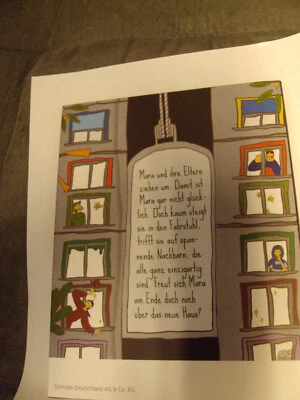 Mara und ihre Eltern
ziehen um. Damit ist
Mara gar nicht glück-
lich. Doch kaum steigt
sie in den Fahrstuhl,
trifft sie auf span-
nende Nachbarn, die
alle ganz einzigartig
sind. Freut sich Mara
am Ende doch noch
über das neue Haus?
Schindler Deutschland AG & Co. KG